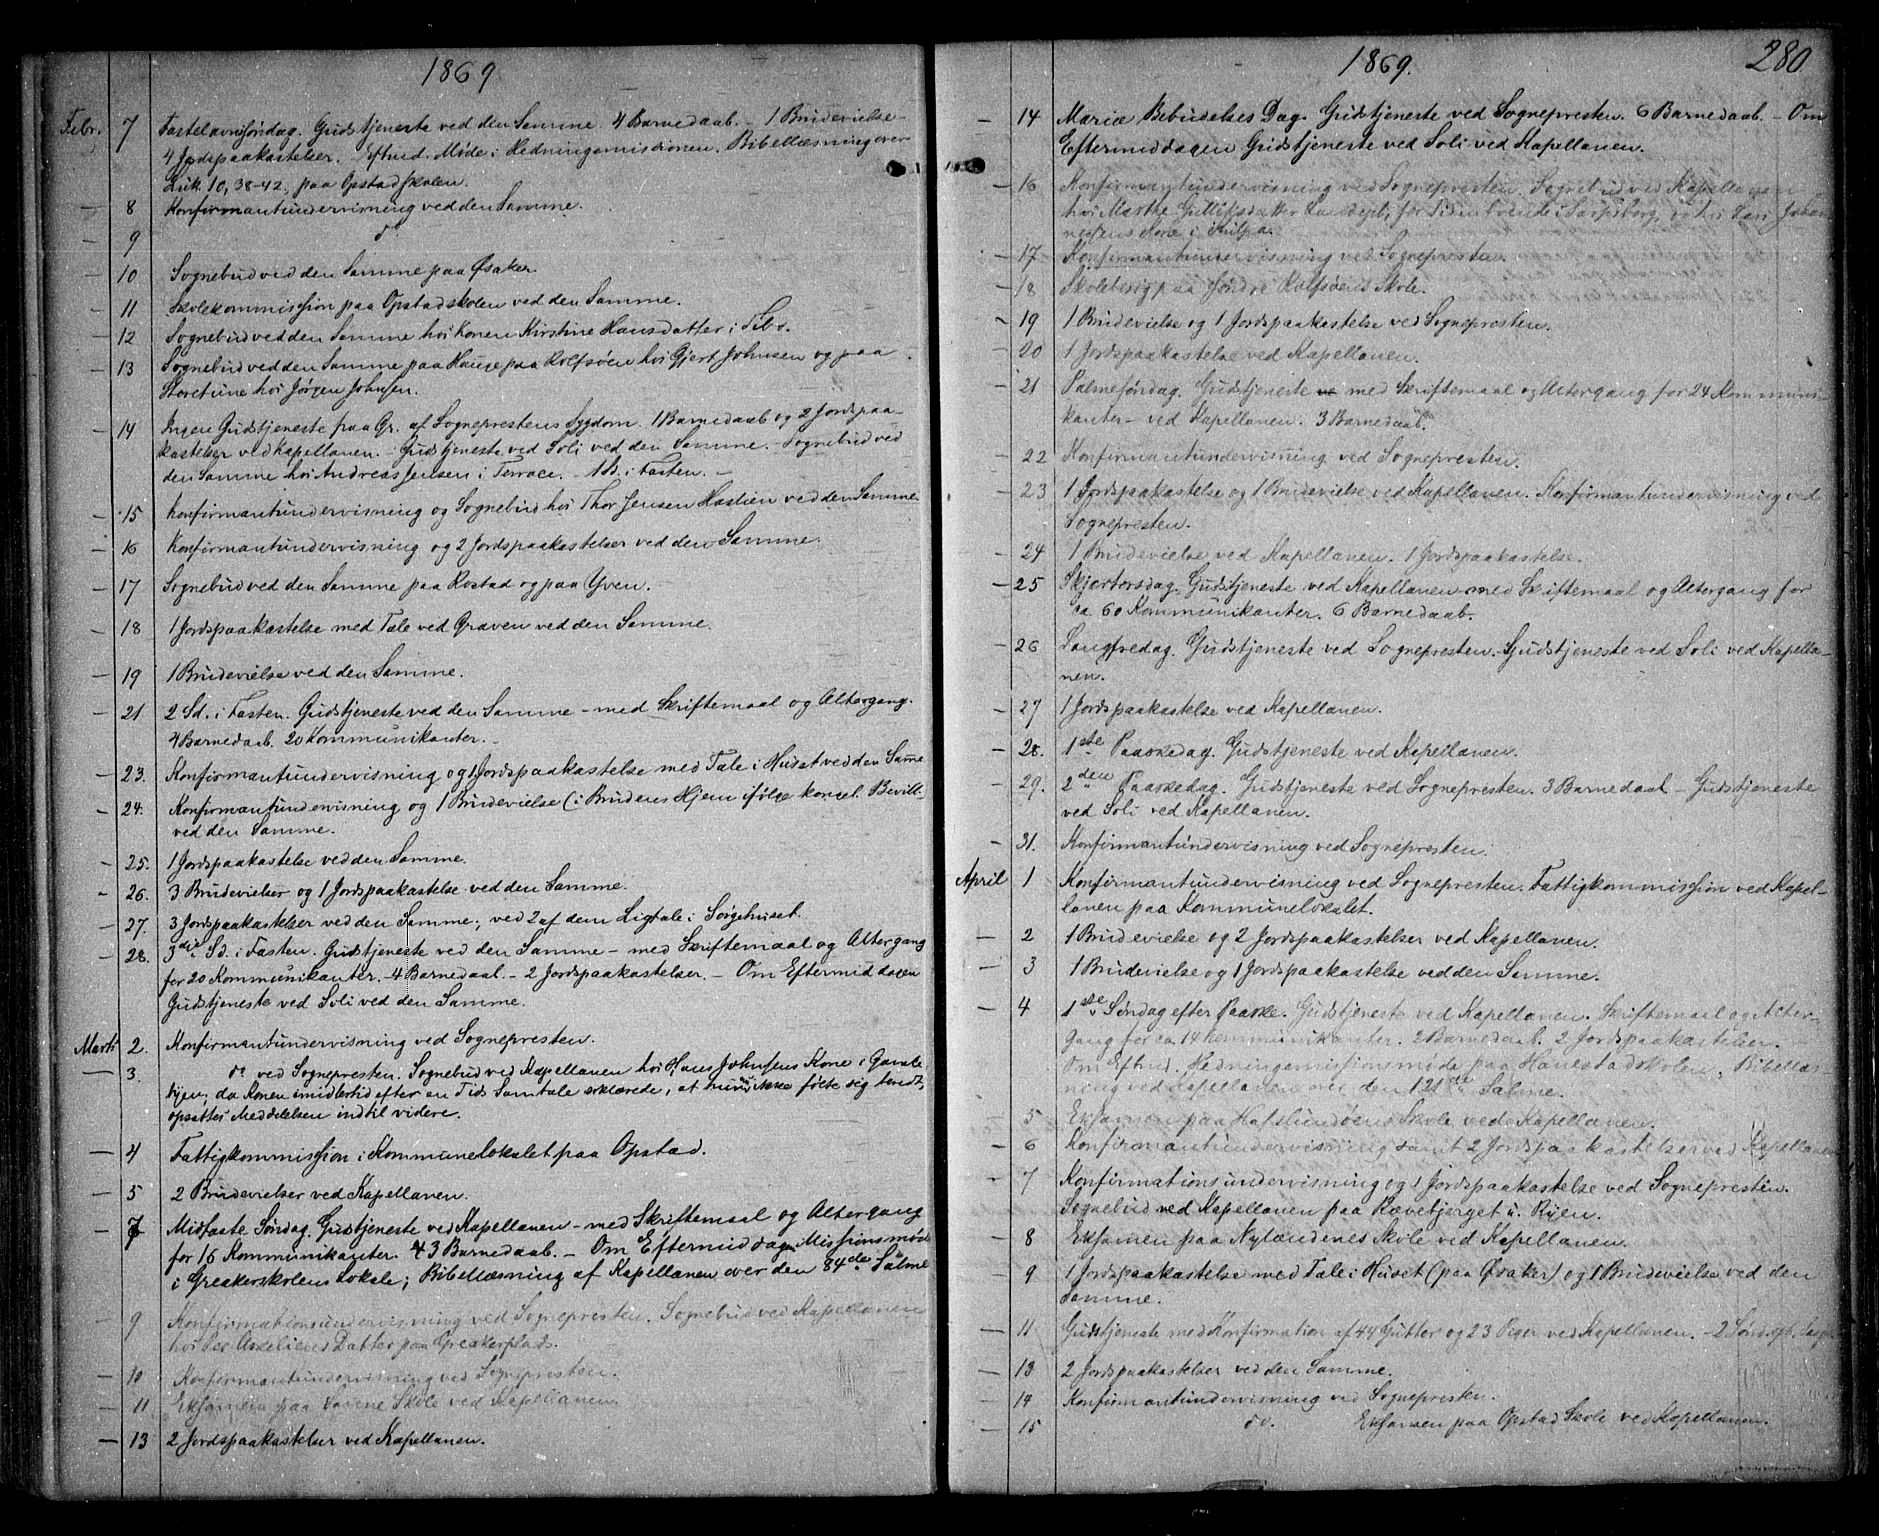 1869
Febr. 7 Fastelavnssöndag. Gudstjeneste ved den Samme. 4 Barnedaab. - 1 Brudevielse -
4 Jordspaakastelser. Eftmd. Møde i Hedningemissionen. Bibellæsning over
Luk. 10, 38-42, paa Opstadskolen.
— 8 Konfirmantundervisning ved den Samme.
— 9 do
— 10 Sognebud ved den Samme paa Øsaker.
— 11 Skolekommission paa Opstadskolen ved den Samme.
— 12 Sognebud ved den Samme hos Konen Kirstine Hansdatter i
— 13 Sognebud ved den Samme paa Hauge paa Rolfsøen hos Gjert Johnsen og paa
Storetune hos Jørgen Johnsen.
— 14 Ingen Gudstjeneste paa Gr. af Sogneprestens Sygdom. 1 Barnedaab og 2 Jordspaa-
kastelser ved Kapellanen. - Gudstjeneste ved Soli ved den Samme. - Sognebud ved
den Samme hos Andreas Jensen i Terrace. - 1 S. i Fasten. -
— 15 Konfirmantundervisning og Sognebud hos Thor Jensen ved den Samme
— 16 Konfirmantundervisning og 2 Jordspaakastelser ved den Samme.
— 17 Sognebud ved den Samme paa Rostad og paa Yven.
— 18 1 Jordspaakastelse med Tale ved Graven ved den Samme.
— 19 1 Brudevielse ved den Samme.
— 21 2 Sd. i Fasten. Gudstjeneste ved den Samme - med Skriftemaal og Altergang.
4 Barnedaab. 20 Kommunikanter. -
— 23. Konfirmantundervisning og 1 Jordspaakastelse med Tale i Huset ved den Samme
— 24. Konfirmantundervisning og 1 Brudevielse (i Brudens Hjem ifølge kongel. Bevill-
ved den Samme.
— 25. 1 Jordspaakastelse ved den Samme.
— 26. 3 Brudevielser og 1 Jordspaakastelse ved den Samme.
— 27. 3 Jordspaakastelser ved den Samme; ved 2 af dem Ligtale i Sørgehuset.
— 28. 3die Sd. i Fasten. Gudstjeneste ved den Samme - med Skriftemaal og Altergang
for 20 Kommunikanter. - 4 Barnedaab. - 2 Jordspaakastelser. - Om Eftermiddagen
Gudstjeneste ved Soli ved den Samme.
Marts 2. Konfirmantundervisning ved Sognepresten.
— 3. do ved Sognepresten. Sognebud ved Kapellanen hos Hans Johnsens Kone i
da Konen imidlertid efter en Tids Samtale erklærede, at hun ikke følte sig
opsattes Meddelelsen indtil videre.
— 4 Fattigkommission i Kommunelokalet paa Opstad.
— 5 2 Brudevielser ved Kapellanen.
— 7 Midfaste Søndag. Gudstjeneste ved Kapellanen - med Skriftemaal og Altergang
for 16 Kommunikanter. 3 Barnedaab. - Om Eftermiddagen Missionsmøde
i Greakerskolens Lokale; Bibellæsning af Kapellanen over den 84de Salme
— 9 Konfirmationsundervisning ved Sognepresten. Sognebud ved Kapellanen
hos Datter paa Greakerplads.
— 10 Konfirmantundervisning ved Sognepresten.
— 11 Eksamen paa Skole ved Kapellanen.
— 13 2 Jordspaakastelser ved Kapellanen.
1869. 280
— 14 Mariæ Bebudelses Dag. Gudstjeneste ved Sognepresten. 6 Barnedaab. - Om
Eftermiddagen Gudstjeneste ved Soli ved Kapellanen.
— 16 Konfirmantundervisning ved Sognepresten. Sognebud ved Kapellanen
hos Marthe Gulliksdatter i Sarpsborg, og hos Johan-
nesens Kone i
— 17 Konfirmantundervisning ved Sognepresten.
— 18 Skolebesøg paa Søndre Rolfsøens Skole.
— 19 1 Brudevielse og 1 Jordspaakastelse ved Sognepresten.
— 20 1 Jordspaakastelse ved Kapellanen.
— 21 Palmesøndag. Gudstjeneste med Skriftemaal og Altergang for 24 Kommuni-
kanter - ved Kapellanen. 3 Barnedaab.
— 22 Konfirmantundervisning ved Sognepresten.
— 23 1 Jordspaakastelse og 1 Brudevielse ved Kapellanen. Konfirmantundervisning ved
Sognepresten.
— 24 1 Brudevielse ved Kapellanen. 1 Jordspaakastelse.
— 25 Skjertorsdag. Gudstjeneste ved Kapellanen med Skriftemaal og Altergang for
ca 60 Kommunikanter. 6 Barnedaab.
— 26 Langfredag. Gudstjeneste ved Sognepresten. Gudstjeneste ved Soli ved Kapella-
nen.
— 27 1 Jordspaakastelse ved Kapellanen.
— 28. 1ste Paaskedag. Gudstjeneste ved Kapellanen.
— 29. 2den Paaskedag. Gudstjeneste ved Sognepresten. 3 Barnedaab - Gudstjeneste
ved Soli ved Kapellanen.
— 31. Konfirmantundervisning ved Sognepresten.
April 1 Konfirmantundervisning ved Sognepresten. Fattigkommission ved Kapel-
lanen paa Kommunelokalet.
— 2 1 Brudevielse og 2 Jordspaakastelser ved Kapellanen.
— 3 1 Brudevielse og 1 Jordspaakastelse ved den Samme.
— 4 1ste Søndag efter Paaske. Gudstjeneste ved Kapellanen. Skriftemaal og Alter-
gang for ca 14 Kommunikanter. 2 Barnedaab. 2 Jordspaakastelser.
Om Eftmd. Hedningemissionsmøde paa Hanestadskolen, Bibellæs-
ning ved Kapellanen over den 121de Salme.
— 5 Eksamen paa Hafslundsøens Skole ved Kapellanen.
— 6 Konfirmantundervisning samt 2 Jordspaakastelser ved Kapellanen
— 7 Konfirmationsundervisning og 1 Jordspaakastelse ved Sognepresten.
Sognebud ved Kapellanen paa Rævebjerget u. Ryen.
— 8 Eksamen paa Nylændenes Skole ved Kapellanen.
— 9 1 Jordspaakastelse med Tale i Huset (paa Øsaker) og 1 Brudevielse ved den
Samme.
— 11 Gudstjeneste med Konfirmation af 44 Gutter og 23 Piger ved Kapellanen. - 2 Sønd. eft.
— 13 2 Jordspaakastelser ved den Samme.
— 14 Konfirmantundervisning ved Sognepresten.
— 15 do. Eksamen paa Opstad Skole ved Kapellanen.